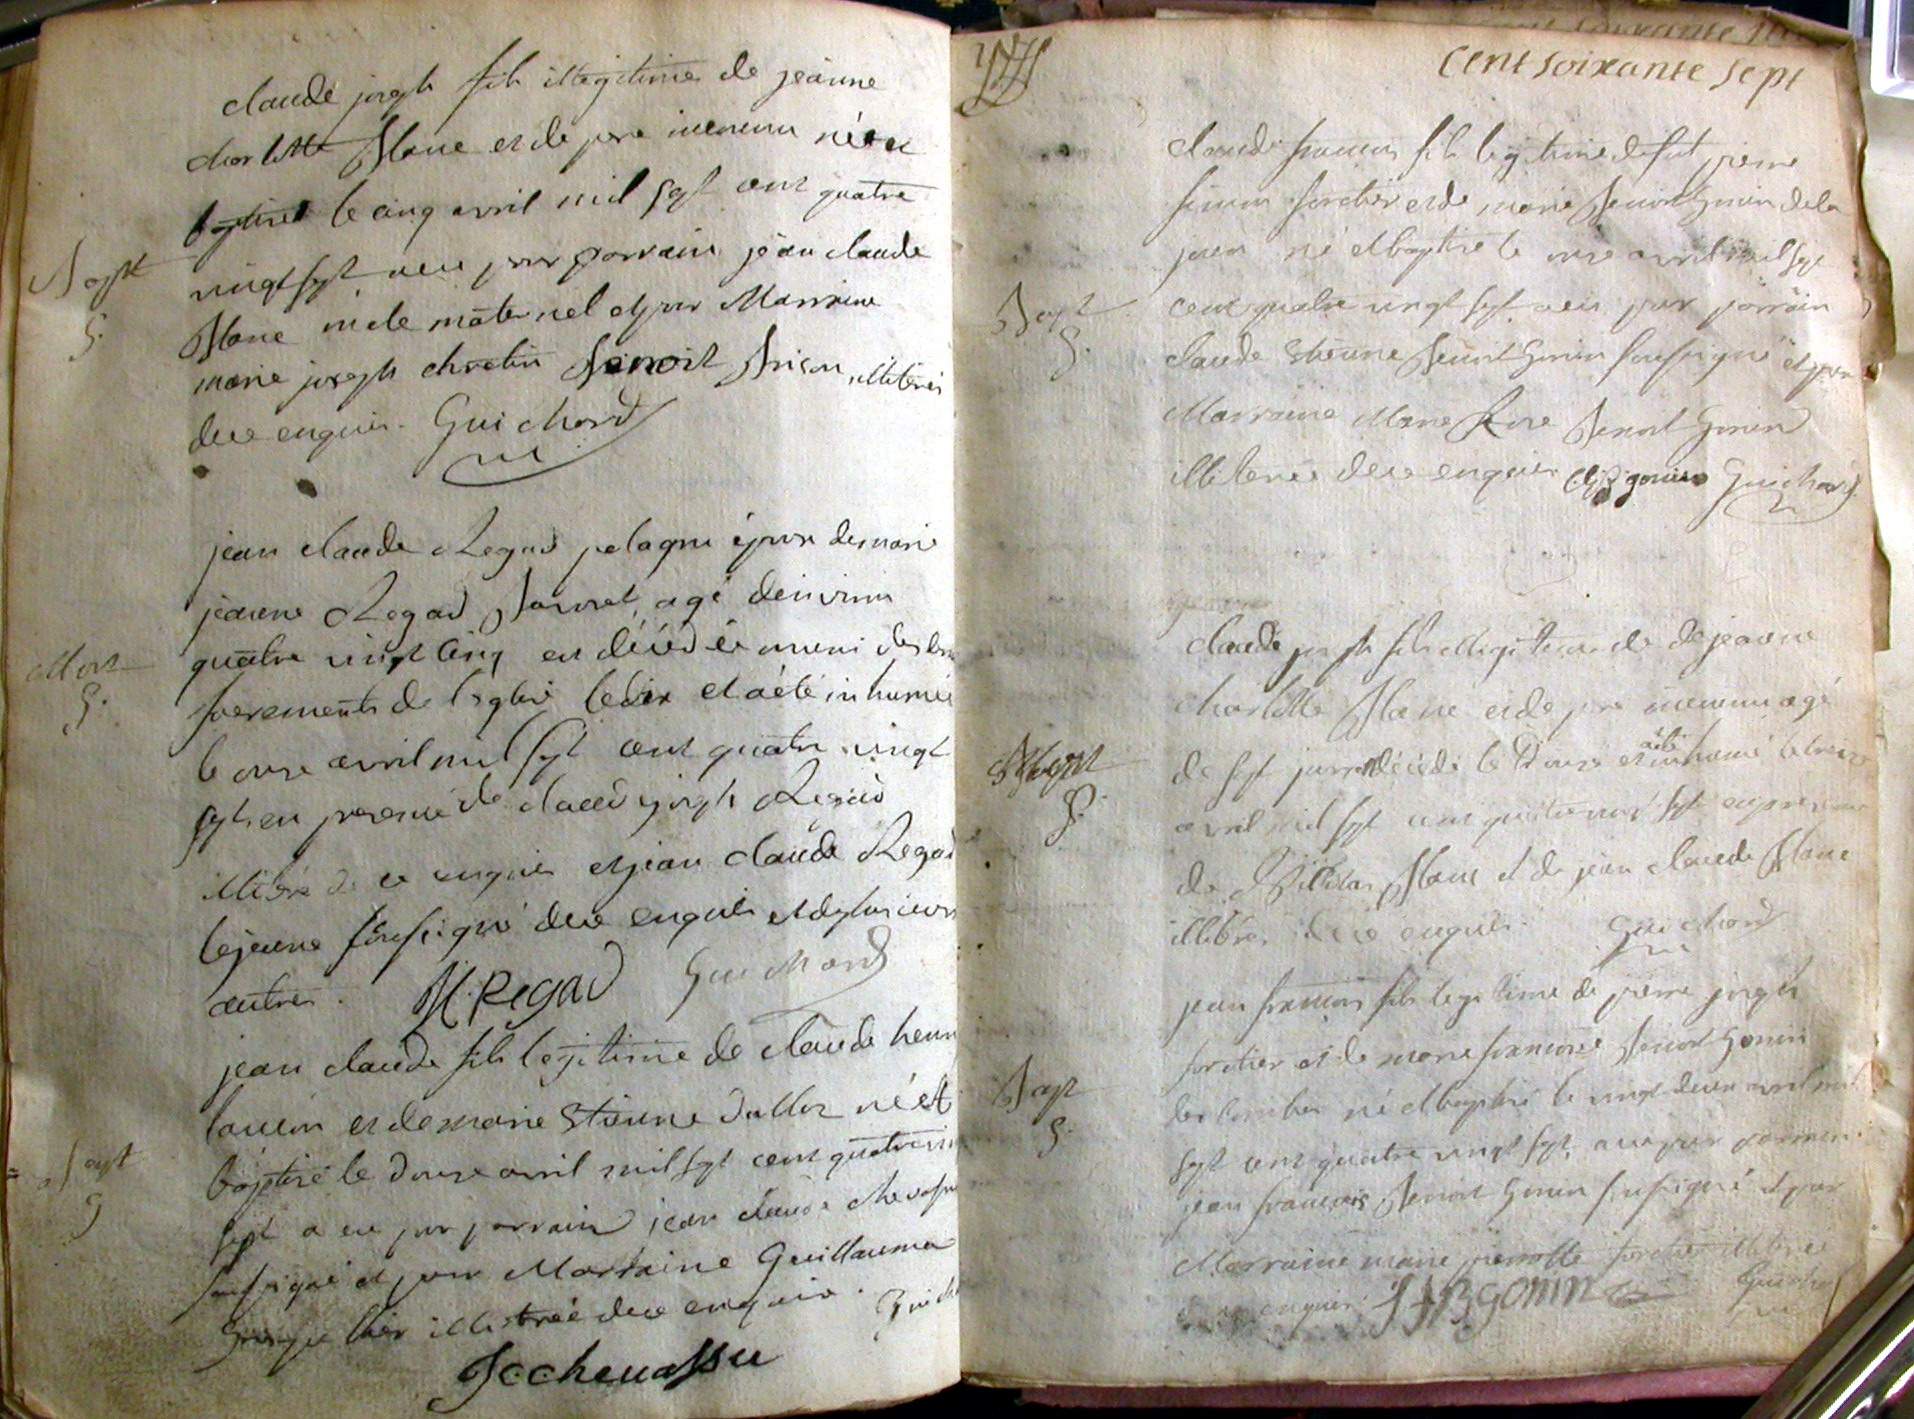 claude joseph fils illegitime de jeanne
charlotte Blanc et de pere inconnu né et
baptisé le cinq avril mil sept cent quatre
vingt sept a eu pour parrain jean claude
Blanc oncle maternel et pour Marraine
marie joseph chretin Benoit Brison illiterés
de ce enquis. Guichard
Bapt
jean claude Regad pelagru époux de marie
jeanne Regad Borsat, agé d'environ
quatre vingt cinq est décédé muni des
sacrements de l'eglise le dix et a été inhumé
le onze avril mil sept cent quatre vingt
sept, en presence de claude joseph Regad
illitéré de ce enquis et jean claude Regad
le jeune soussigné de ce enquis et de plusieurs
autres. Regad Guichard
Mort
jean claude fils legitime de claude henri
et de marie Etienne Dalloz né et
baptisé le douze avril mil sept cent quatre
sept a eu pour parrain jean claude
soussigné et pour Marraine Guillauma
illiterée de ce enquis.
Jcchevassu
Bapt
cent soixante sept
claude francois fils legitime de fut pierre
simon forétier et de marie Benoit Gonin de la
joux né et baptisé le onze avril mil sept
cent quatre vingt sept a eu pour parrain
claude Etienne Benoit Gonin soussigné et pour
Marraine Marie Rose Benoit Gonin
illiterée de ce enquis gonin Guichard
Bapt
claude joseph fils illegitime de de jeanne
charlotte Blanc et de pere inconnu agé
de sept jours décédé le Douze et a été inhumé le treize
avril mil sept cent quatre vingt sept en presence
de Blanc et de jean claude Blanc
illiterés de ce enquis. Guichard
jean francois fils legitime de pierre joseph
foretier et de marie francoise Benoit Gonin
des combes né et baptisé le vingt deux avril mil
sept cent quatre vingt sept, a eu pour parrain
jean francois Benoit Gonin soussigné et pour
Marraine marie pierrotte foretier illiterée
de ce enquis. JfBgonin Guichard
Bapt